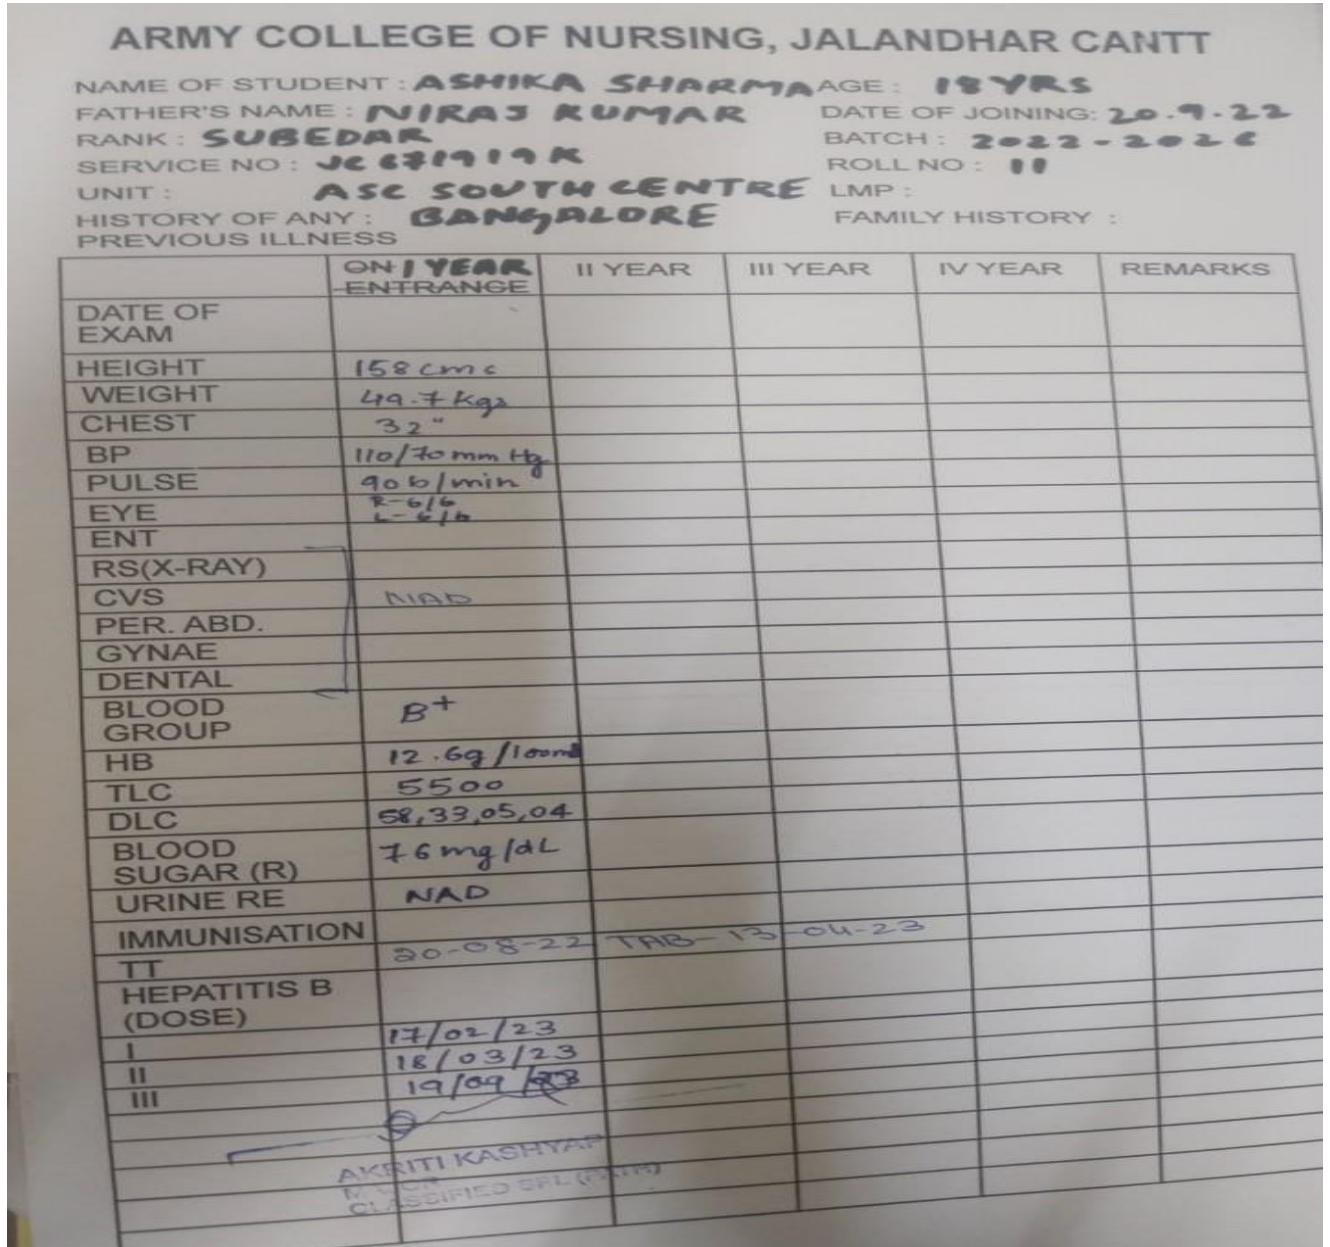 ARMY COLLEGE OF NURSING, JALANDHAR CANTT
NAME OF STUDENT : ASHIKA SHARMA AGE : 18 YRS
FATHER'S NAME : NIRAJ KUMAR DATE OF JOINING: 20.9.22
RANK : SUBEDAR BATCH : 2022-2026
SERVICE NO : JC 671919K ROLL NO : 11
UNIT : ASC SOUTH CENTRE LMP :
HISTORY OF ANY : BANGALORE FAMILY HISTORY :
PREVIOUS ILLNESS
ON I YEAR II YEAR III YEAR IV YEAR REMARKS
ENTRANCE
DATE OF
EXAM
HEIGHT 158 cms
WEIGHT 49.7 Kgs
CHEST 32"
BP 110/70 mm Hg
PULSE 90 b/min
EYE R-6/6
L-6/6
ENT
RS(X-RAY)
CVS NAD
PER. ABD.
GYNAE
DENTAL
BLOOD
GROUP B+
HB 12.6g/100ml
TLC 5500
DLC 58,33,05,04
BLOOD
SUGAR (R) 76 mg/dL
URINE RE NAD
IMMUNISATION
TT 20-08-22 TAB-13-04-23
HEPATITIS B
(DOSE)
I 17/02/23
II 18/03/23
III 19/09/23
AKRITI KASHYAP
CLASSIFIED SPL (PATH)